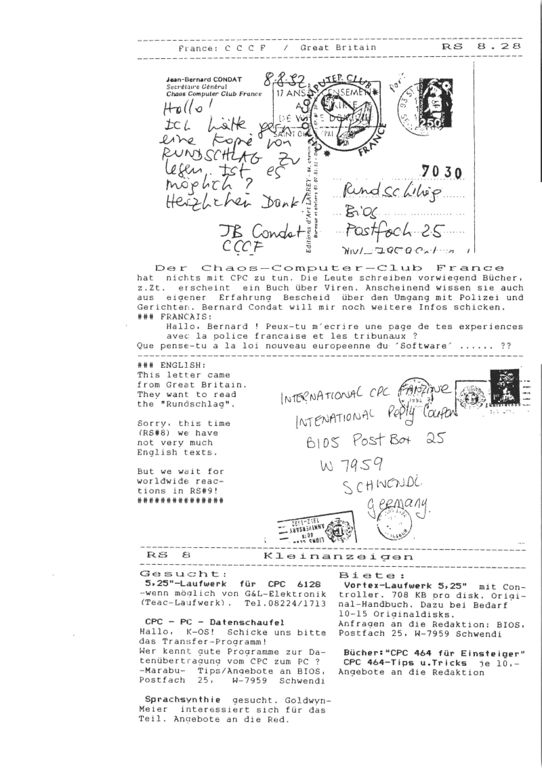 France: C C C F / Great Britain RS 8.28
Jean-Bernard CONDAT
Secrétaire Général
Chaos Computer Club France
8.8.92
Hallo!
Ich hätte gern
eine Kopie von
RUNDSCHLAG zu
lesen. Ist es
möglich?
Herzlichen Dank!
JB Condat
CCCF
17 ANS
COMPUTER CLUB
FRANCE
Paris
7030
Rundschlag
Bios
Postfach 25
Der Chaos-Computer-Club France
hat nichts mit CPC zu tun. Die Leute schreiben vorwiegend Bücher,
z.Zt. erscheint ein Buch über Viren. Anscheinend wissen sie auch
aus eigener Erfahrung Bescheid über den Umgang mit Polizei und
Gerichten. Bernard Condat will mir noch weitere Infos schicken.
### FRANCAIS:
Hallo, Bernard ! Peux-tu m'ecrire une page de tes experiences
avec la police francaise et les tribunaux ?
Que pense-tu a la loi nouveau europeenne du 'Software' ...... ??
### ENGLISH:
This letter came
from Great Britain.
They want to read
the "Rundschlag".
Sorry, this time
(RS#8) we have
not very much
English texts.
But we wait for
worldwide reac-
tions in RS#9!
###############
INTERNATIONAL CPC FANZINE
INTENATIONAL Reply Coupon
BIOS Post Box 25
W 7959
SCHWENDI
Germany.
ANNIVERSARY
RS 8 Kleinanzeigen
Gesucht:
5,25"-Laufwerk für CPC 6128
-wenn möglich von G&L-Elektronik
(Teac-Laufwerk). Tel.08224/1713
CPC - PC - Datenschaufel
Hallo, K-OS! Schicke uns bitte
das Transfer-Programm!
Wer kennt gute Programme zur Da-
tenübertragung vom CPC zum PC ?
-Marabu- Tips/Angebote an BIOS,
Postfach 25, W-7959 Schwendi
Sprachsynthie gesucht. Goldwyn-
Meier interessiert sich für das
Teil. Angebote an die Red.
Biete:
Vortex-Laufwerk 5,25" mit Con-
troller. 708 KB pro disk. Origi-
nal-Handbuch. Dazu bei Bedarf
10-15 Originaldisks.
Anfragen an die Redaktion: BIOS,
Postfach 25, W-7959 Schwendi
Bücher:"CPC 464 für Einsteiger"
CPC 464-Tips u.Tricks je 10,-
Angebote an die Redaktion